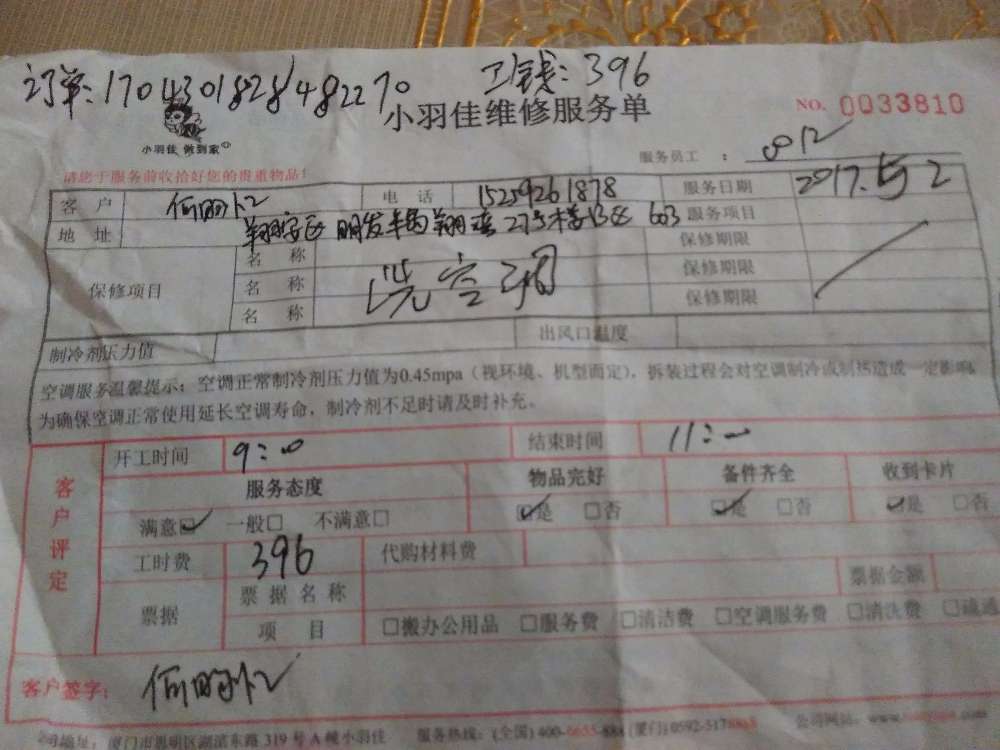 订单:1704301828482270 工钱:396
小羽佳维修服务单 NO. 0033810
小羽佳 做到家
服务员工 : 0012
请您于服务前收拾好您的贵重物品!
客 户 电 话 15259261878 服务日期 2017.5 2
地 址 翔安区 明发 翔 27号楼B区 603 服务项目
保修项目 名 称 洗空调 保修期限
名 称 保修期限
名 称 保修期限
制冷剂压力值 出风口温度
空调服务温馨提示:空调正常制冷剂压力值为0.45mpa(视环境、机型而定),拆装过程会对空调制冷或制热造成一定影响,
为确保空调正常使用延长空调寿命,制冷剂不足时请及时补充。
客户评定
开工时间 9:00 结束时间 11:00
服务态度 物品完好 备件齐全 收到卡片
满意☑ 一般□ 不满意□ ☑是 □否 ☑是 □否 ☑是 □否
工时费 396 代购材料费
票据 票据名称 票据金额
项 目 □搬办公用品 □服务费 □清洁费 □空调服务费 □清洗费 □疏通
客户签字:
公司地址: 厦门市思明区湖滨东路 319 号 A 幢小羽佳 服务热线:(全国) 400- (厦门) 0592-517 公司网站:www.